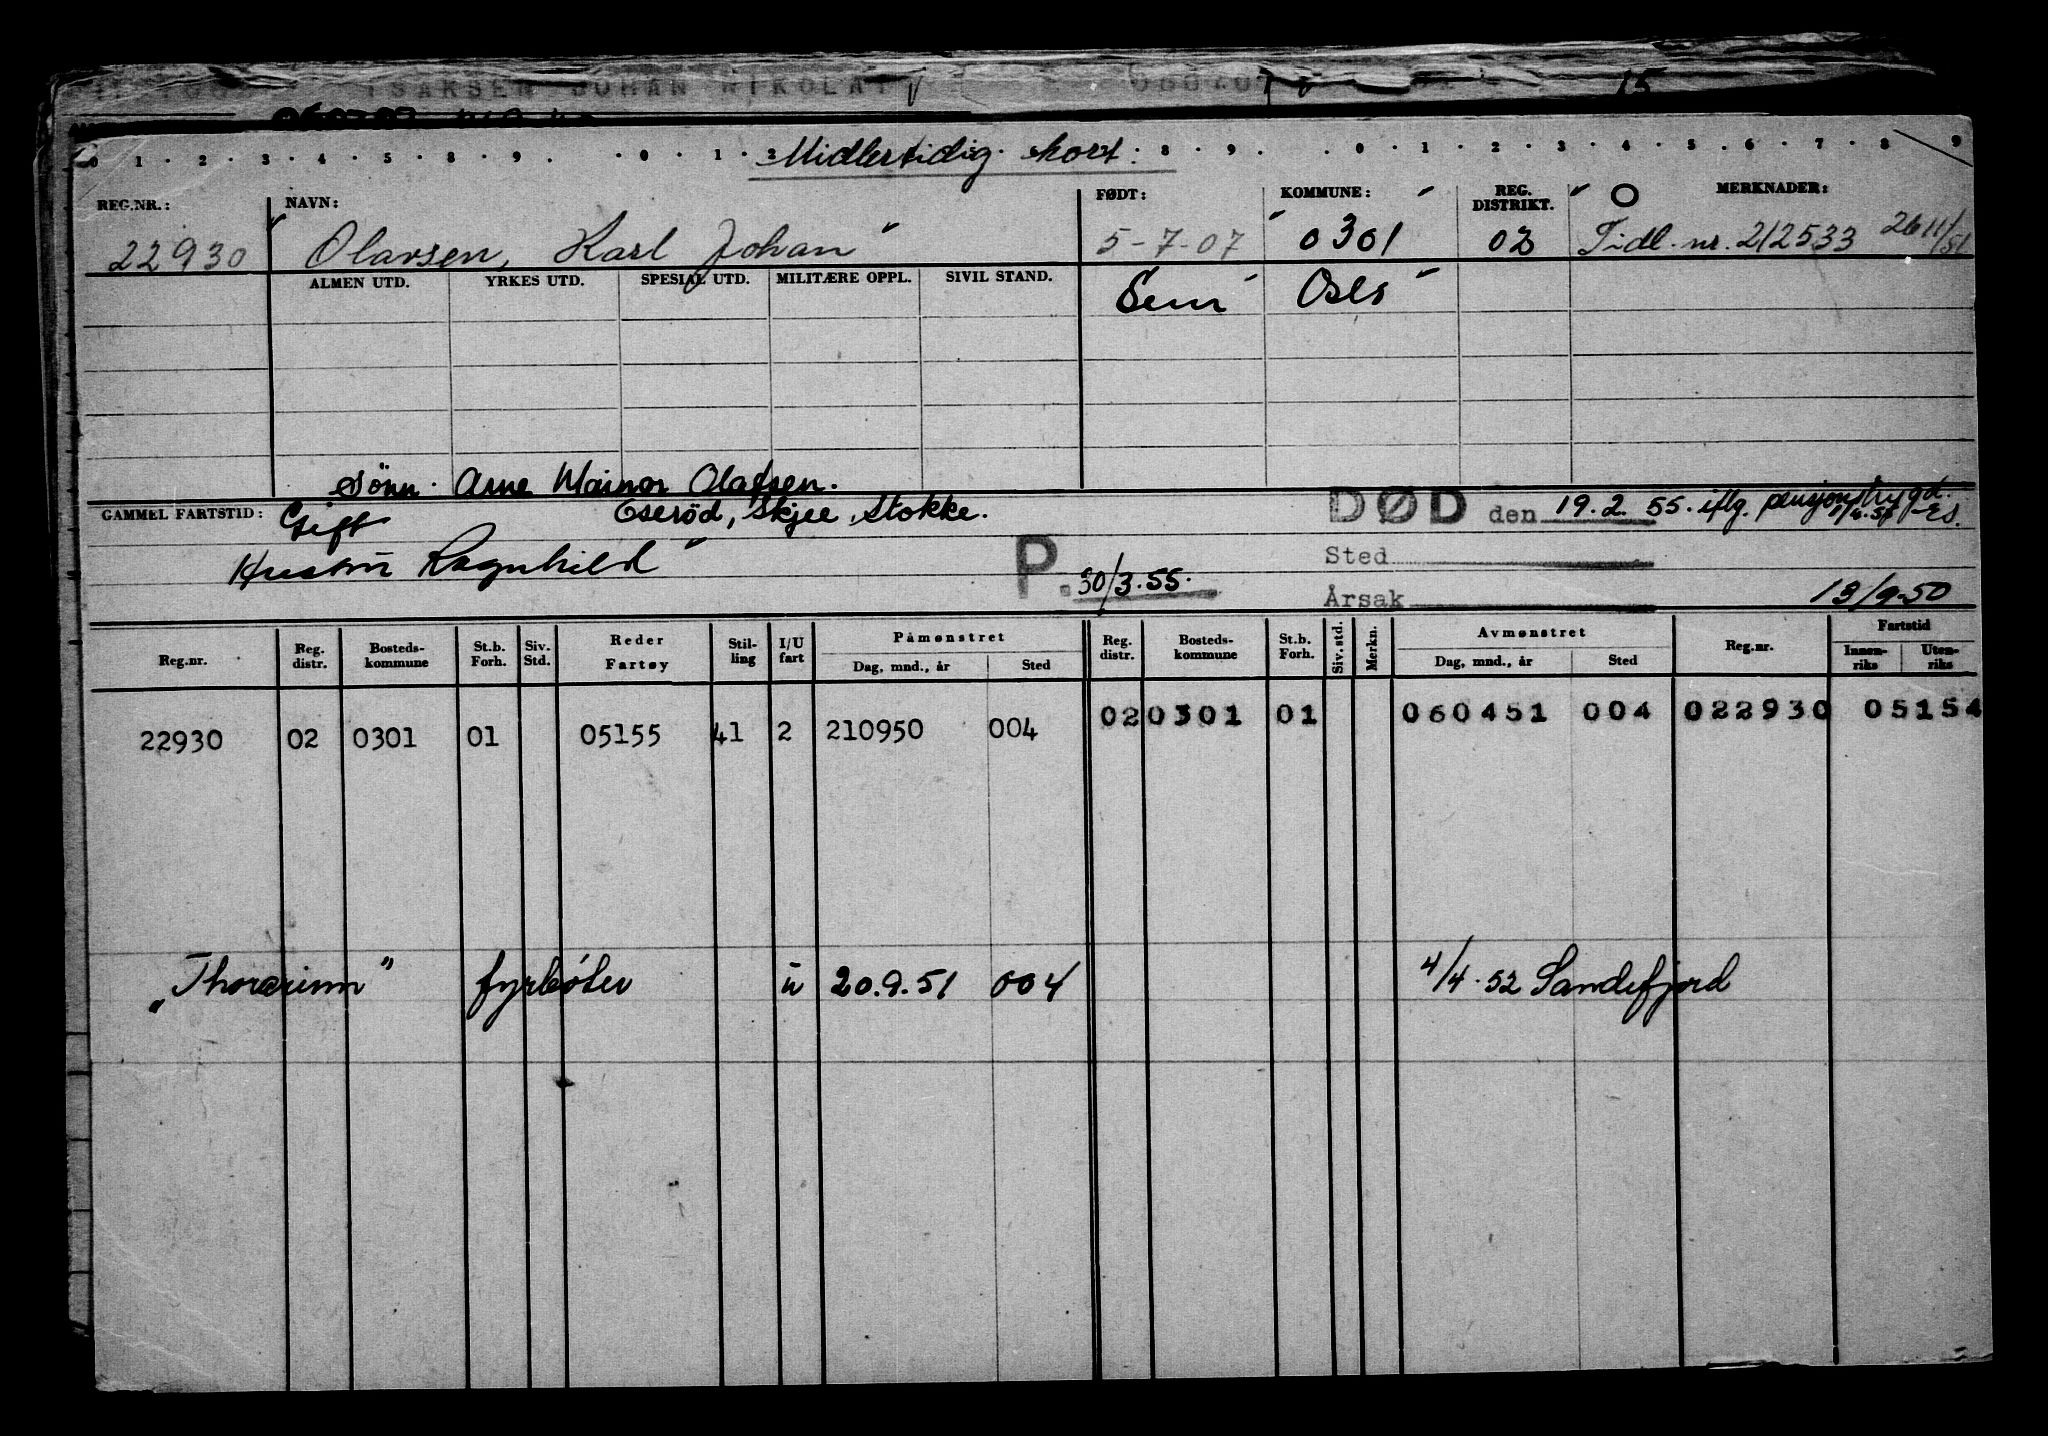 ISAKSEN JOHAN NIKOLAI
15
Midlertidig kort.
REG.NR.: NAVN: FØDT: KOMMUNE: REG. DISTRIKT. MERKNADER:
22930 Olavsen, Karl Johan 5-7-07 0301 02 Tidl. nr. 212533 26/11/51
ALMEN UTD. YRKES UTD. SPESIAL UTD. MILITÆRE OPPL. SIVIL STAND. Sem Oslo
Sønn. Arne Mainor Olafsen.
GAMMEL FARTSTID: Gift Eserød, Skjee, Stokke. DØD den 19.2.55. iflg. pensjonstrygd.
Hustru Ragnhild P. 30/3.55. Sted
Årsak 13/9-50
Reg.nr. Reg. distr. Bosteds- kommune St.b. Forh. Siv. Std. Reder Fartøy Stil- ling I/U fart Påmønstret Dag, mnd., år Sted Reg. distr. Bosteds- kommune St.b. Forh. Siv. std. Merkn. Avmønstret Dag, mnd., år Sted Reg.nr. Fartstid Innen- riks Uten- riks
22930 02 0301 01 05155 41 2 210950 004 02 0301 01 060451 004 022930 05154
"Thorarinn" fyrbøter u 20.9.51 004 4/4.52 Sandefjord